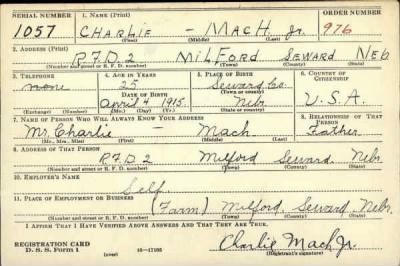 SERIAL NUMBER 1. NAME (Print) ORDER NUMBER
1057 CHARLIE - MACH Jr. 976
(First) (Middle) (Last)
2. ADDRESS (Print)
R.F.D. 2 MILFORD SEWARD NEB
(Number and street or R. F. D. number) (Town) (County) (State)
3. TELEPHONE 4. AGE IN YEARS 5. PLACE OF BIRTH 6. COUNTRY OF CITIZENSHIP
none 25 Seward Co.
DATE OF BIRTH (Town or county)
April 4 1915. Nebr. U.S.A.
(Exchange) (Number) (Mo.) (Day) (Yr.) (State or country)
7. NAME OF PERSON WHO WILL ALWAYS KNOW YOUR ADDRESS 8. RELATIONSHIP OF THAT PERSON
Mr. Charlie - Mach Father
(Mr., Mrs., Miss) (First) (Middle) (Last)
9. ADDRESS OF THAT PERSON
R.F.D. 2 Milford Seward Nebr.
(Number and street or R. F. D. number) (Town) (County) (State)
10. EMPLOYER'S NAME
Self.
11. PLACE OF EMPLOYMENT OR BUSINESS
(Farm) Milford, Seward, Nebr.
(Number and street or R. F. D. number) (Town) (County) (State)
I AFFIRM THAT I HAVE VERIFIED ABOVE ANSWERS AND THAT THEY ARE TRUE.
REGISTRATION CARD
D. S. S. Form 1 (over) 16-17105 Charlie Mach Jr.
(Registrant's signature)